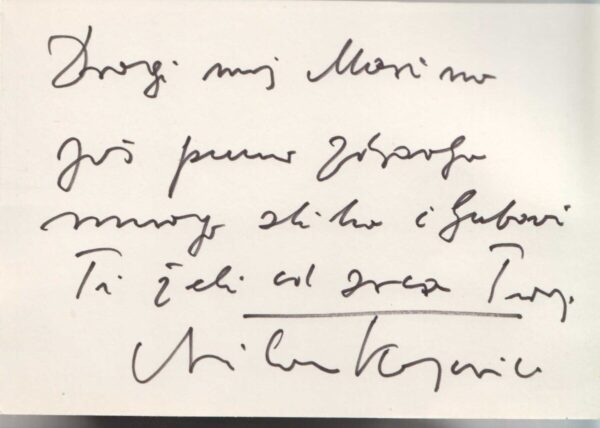 Dragi moj
još puno zdravlja
mnogo slika i ljubavi
Ti želi od srca Tvoj
Milan